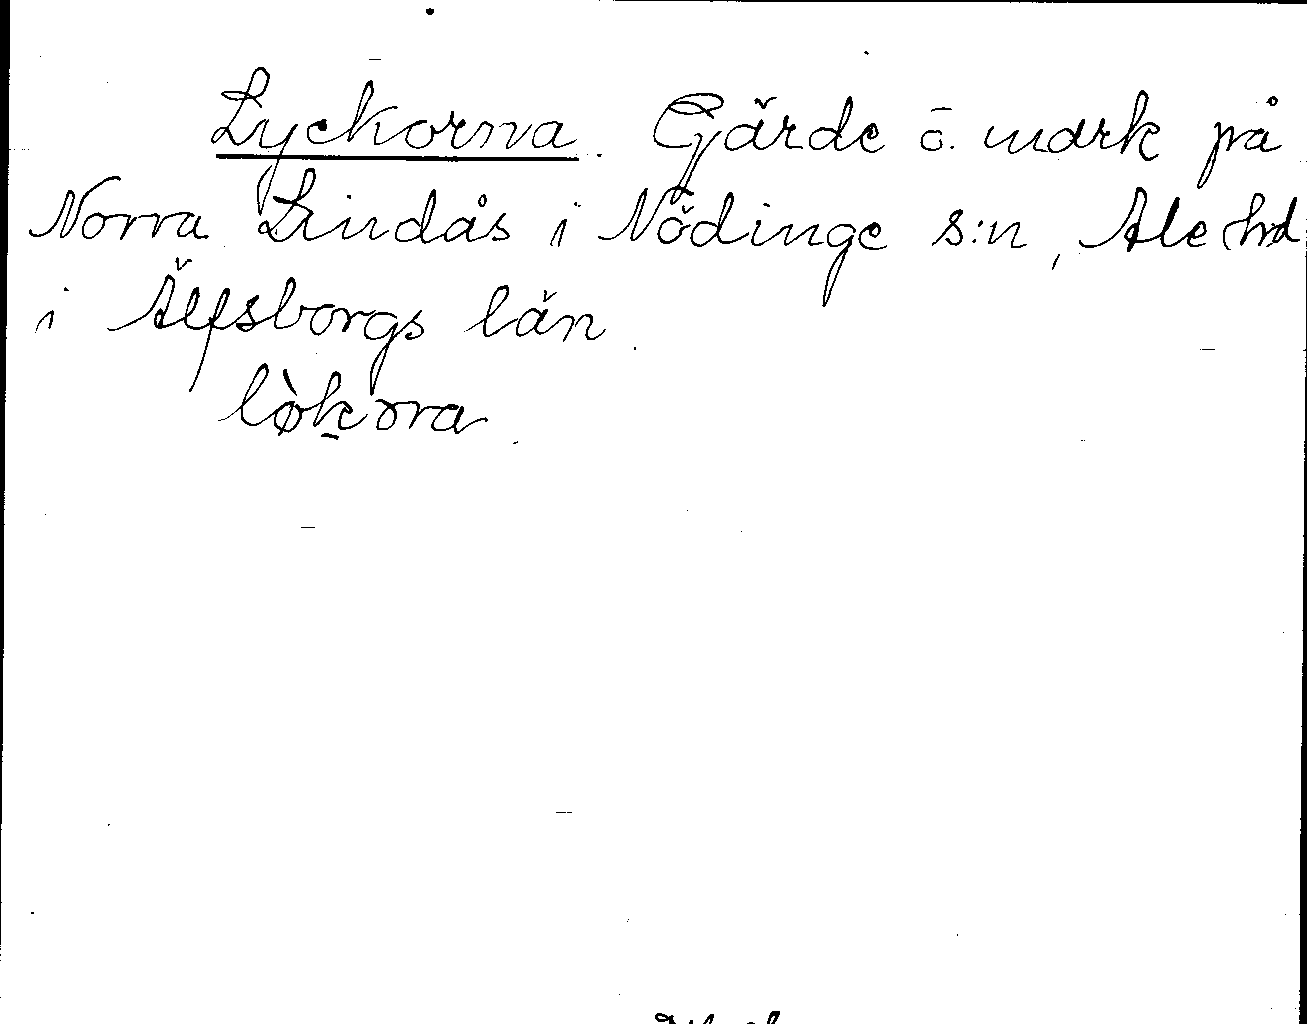 Lyckorna. Gärde ö. mark på
Norra Lindås i Nödinge s:n, Ale hd
i Älfsborgs län.
lòk̲ɔra